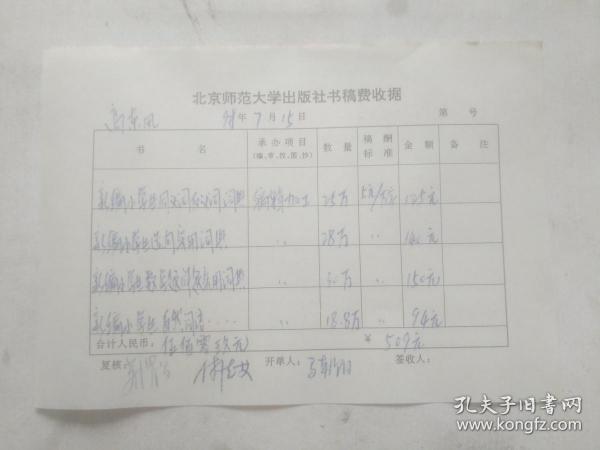 北京师范大学出版社书稿费收据
高东风 94年7月15日 第 号
书 名 承办项目 (编、审、校、图、抄) 数量 稿酬标准 金额 备注
新编小学生同义词反义词词典 编辑加工 25万 5元/万字 125元
新编小学生造句实用词典 〃 28万 〃 140元
新编小学生 30万 〃 150元
新编小学生自然词语.... 〃 18.8万 〃 94元
合计人民币：伍佰零玖元 ¥ 509元
复核： 开单人： 签收人：
孔夫子旧书网
www.kongfz.com